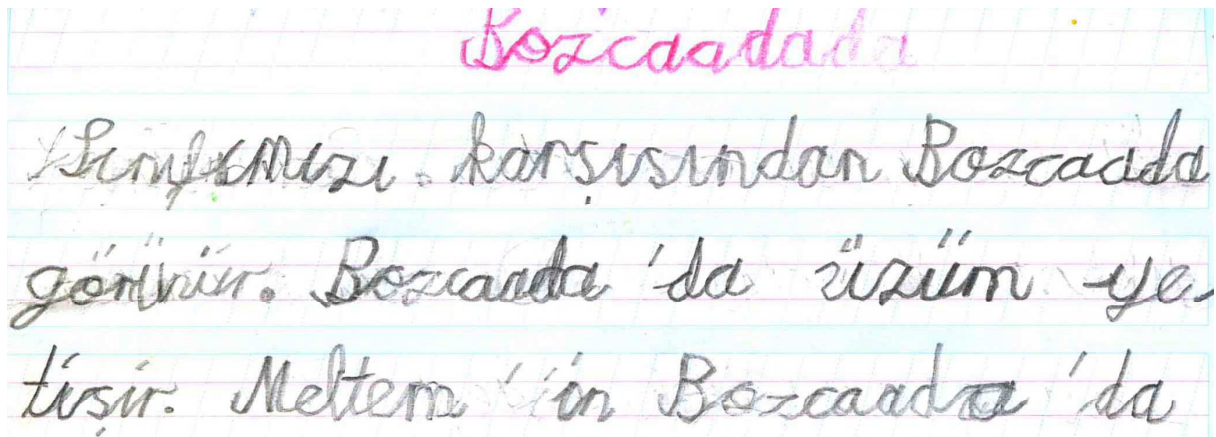 Bozcaadada
Sınıfımızı. karşısından Bozcaada
görünür. Bozcaada 'da üzüm ye-
tişir. Meltem 'in Bozcaada 'da